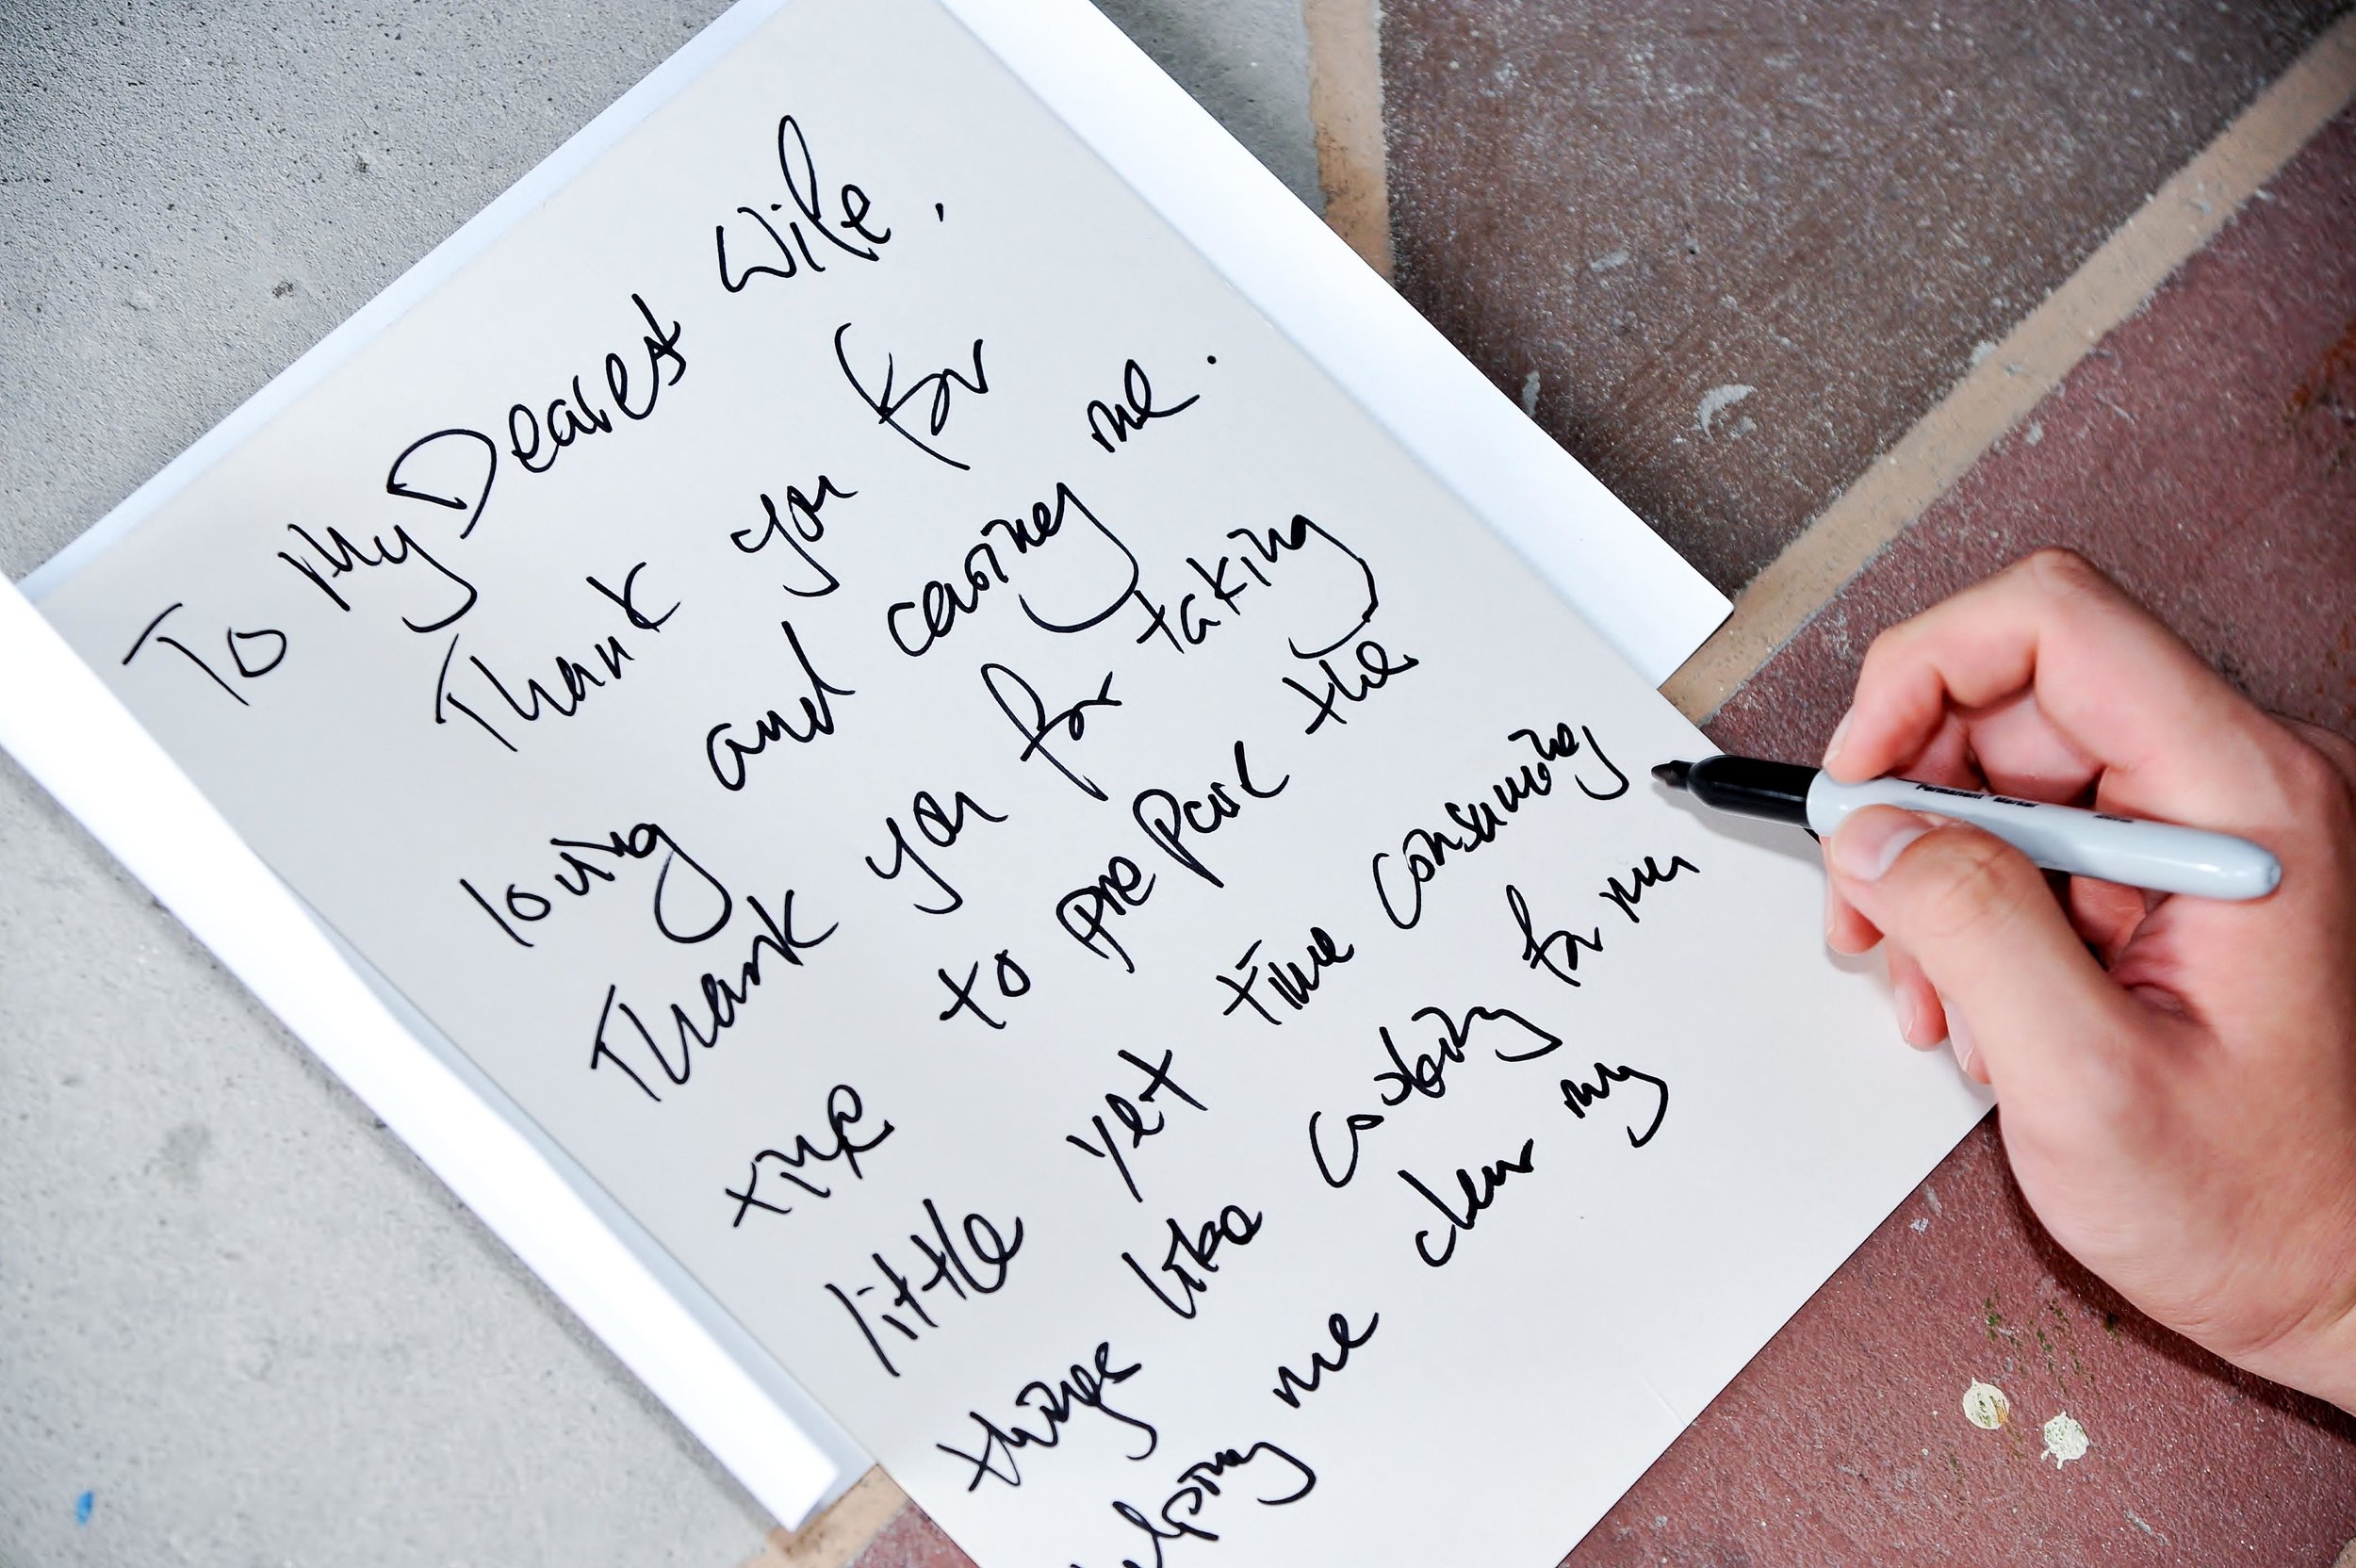 To My Dearest Wife,
Thank you for
loving and caring me.
Thank you for taking
time to prepare the
little yet time consuming
things like cooking for me
helping me clear my
Permanent Marker